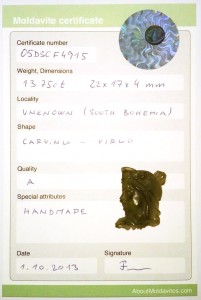 Moldavite certificate
Certificate number
05DSCF4915
Weight, Dimensions
13.75ct 22x17x4 mm
Locality
UNKNOWN (SOUTH BOHEMIA)
Shape
CARVING - VIRGO
Quality
A
Special attributes
HANDMADE
Date
Signature
1.10.2013
AboutMoldavites.com